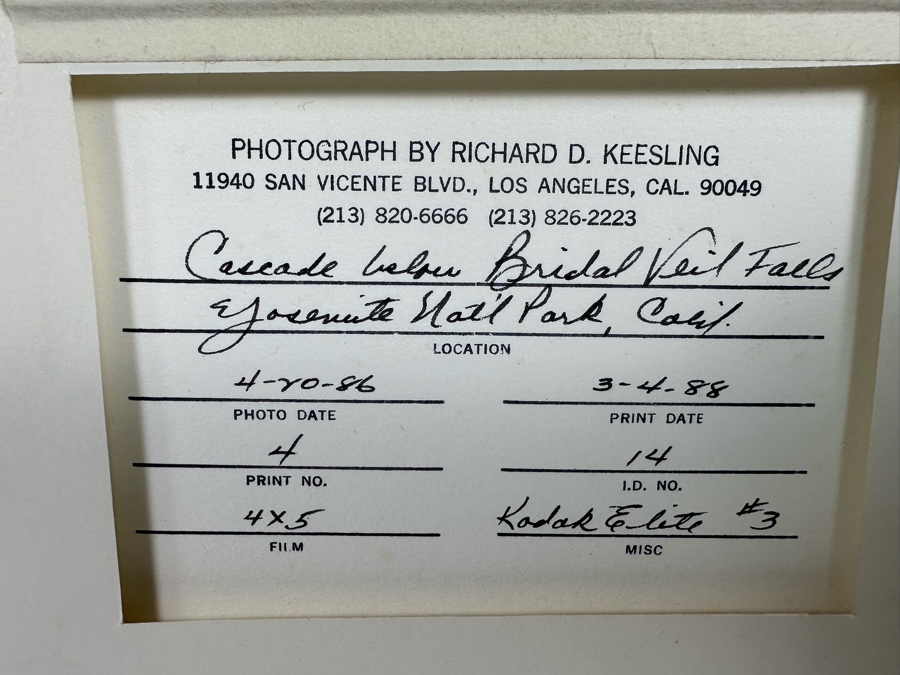 PHOTOGRAPH BY RICHARD D. KEESLING
11940 SAN VICENTE BLVD., LOS ANGELES, CAL. 90049
(213) 820-6666 (213) 826-2223
Cascade below Bridal Veil Falls
Yosemite Nat'l Park, Calif.
LOCATION
4-20-86 3-4-88
PHOTO DATE PRINT DATE
4 14
PRINT NO. I.D. NO.
4x5 Kodak Elite #3
FILM MISC